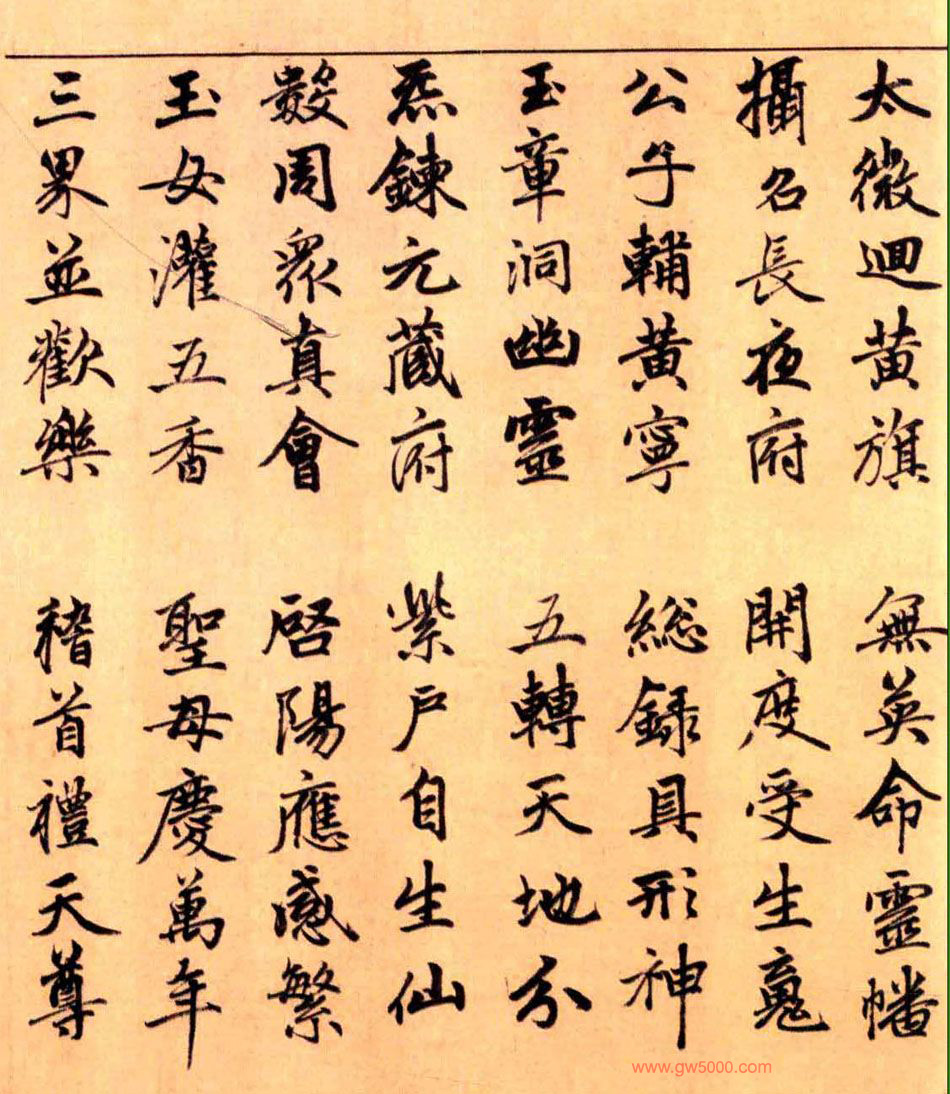 太微迴黄旗 無英命靈幡
攝召長夜府 開度受生魂
公子輔黄寧 総録具形神
玉章洞幽靈 五轉天地分
炁鍊元藏府 紫戶自生仙
數周眾真會 啓陽應感繁
玉女灌五香 聖母慶萬年
三界並歡樂 稽首禮天尊
www.gw5000.com